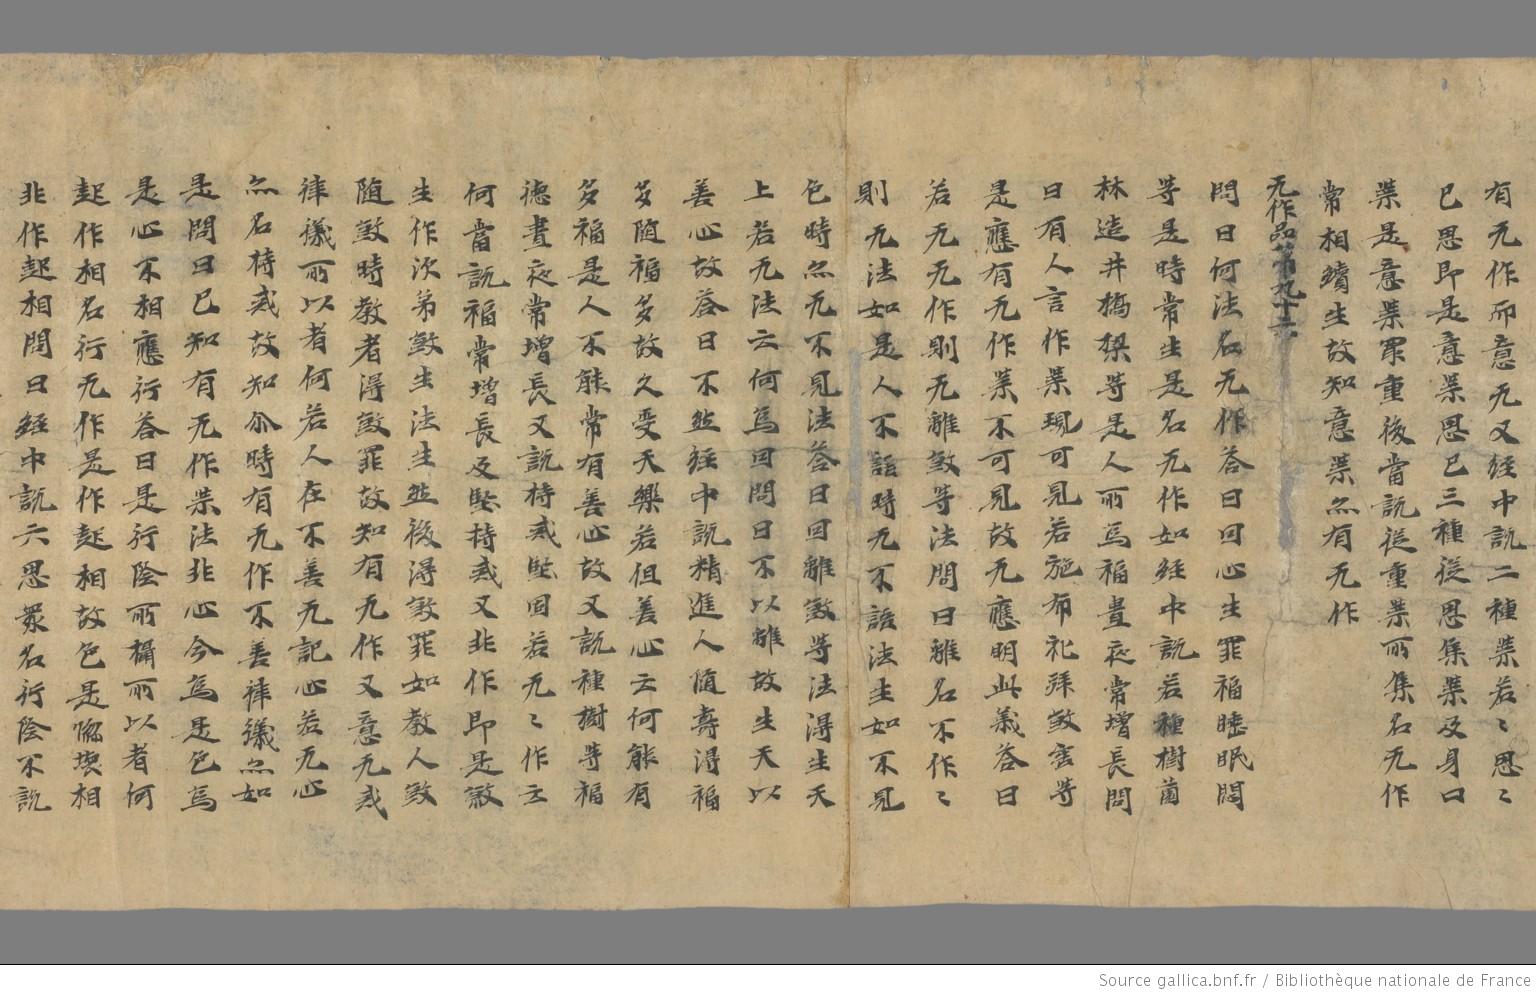 有无作而意无又經中說二種業若〻思〻
已思即是意業思已三種従思集業及身口
業是意業罪重後當說従重業所集名无作
常相續生故知意業亦有无作
无作品第九十六
問曰何法名无作答曰因心生罪福睡眠悶
等是時常生是名无作如經中說若種樹薗
林造井橋梁等是人所為福晝夜常增長問
曰有人言作業現可見若施布礼拜殺害等
是應有无作業不可見故无應明此義答曰
若无无作則无離殺等法問曰離名不作〻
則无法如是人不語時无不語法生如不見
色時亦无不見法答曰因離殺等法得生天
上若无法云何為因問曰不以離故生天以
善心故答曰不然經中說精進人随壽得福
多随福多故久受天樂若但善心云何能有
多福是人不能常有善心故又說種樹等福
德晝夜常增長又說持戒堅固若无〻作云
何當說福常增長及堅持戒又非作即是殺
生作次苐殺生法生然後得殺罪如教人殺
随殺時教者得殺罪故知有无作又意无戒
律儀所以者何若人在不善无記心若无心
亦名持戒故知尒時有无作不善律儀亦如
是問曰已知有无作業法非心今為是色為
是心不相應行答曰是行陰所攝所以者何
起作相名行无作是作起相故色是惱壞相
非作起相問曰經中說六思衆名行陰不說
Source gallica.bnf.fr / Bibliothèque nationale de France